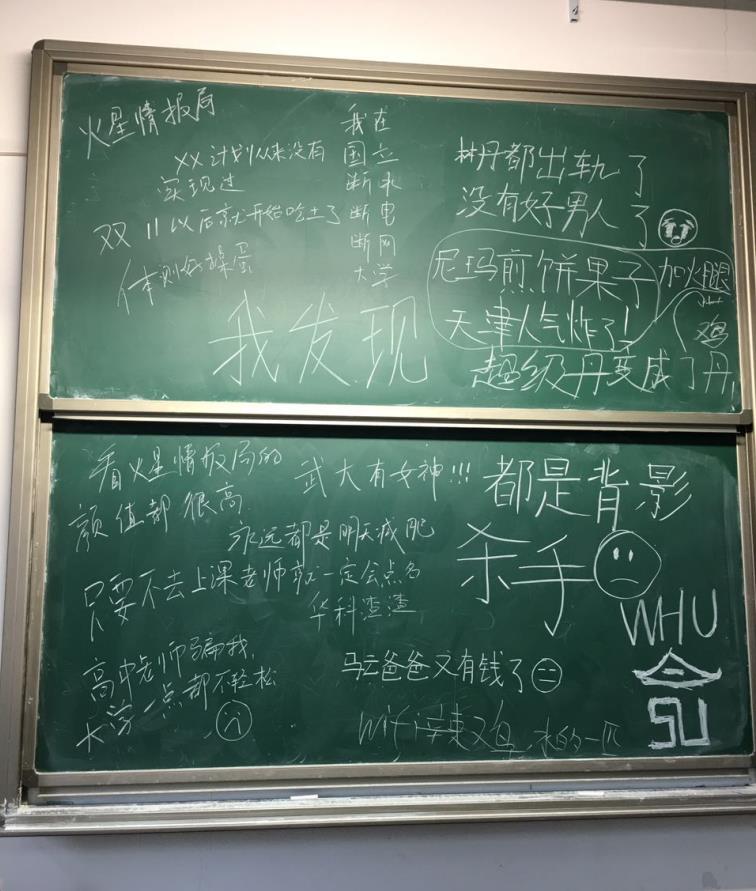 火星情报局
xx计划从来没有
实现过
双11以后就开始吃土了
体测好操蛋
我在
国立
断水
断电
断网
大学
林丹都出轨了
没有好男人了
尼玛煎饼果子加火腿
鸡
天津人气炸了!
超级丹变成了丹
我发现
看火星情报局的
颜值都很高
武大有女神!!!
都是背影
杀手
永远都是明天减肥
只要不去上课老师就一定会点名
华科渣渣
WHU
SU
高中老师骗我,
大学一点都不轻松
马云爸爸又有钱了
wifi辣鸡 水的一匹